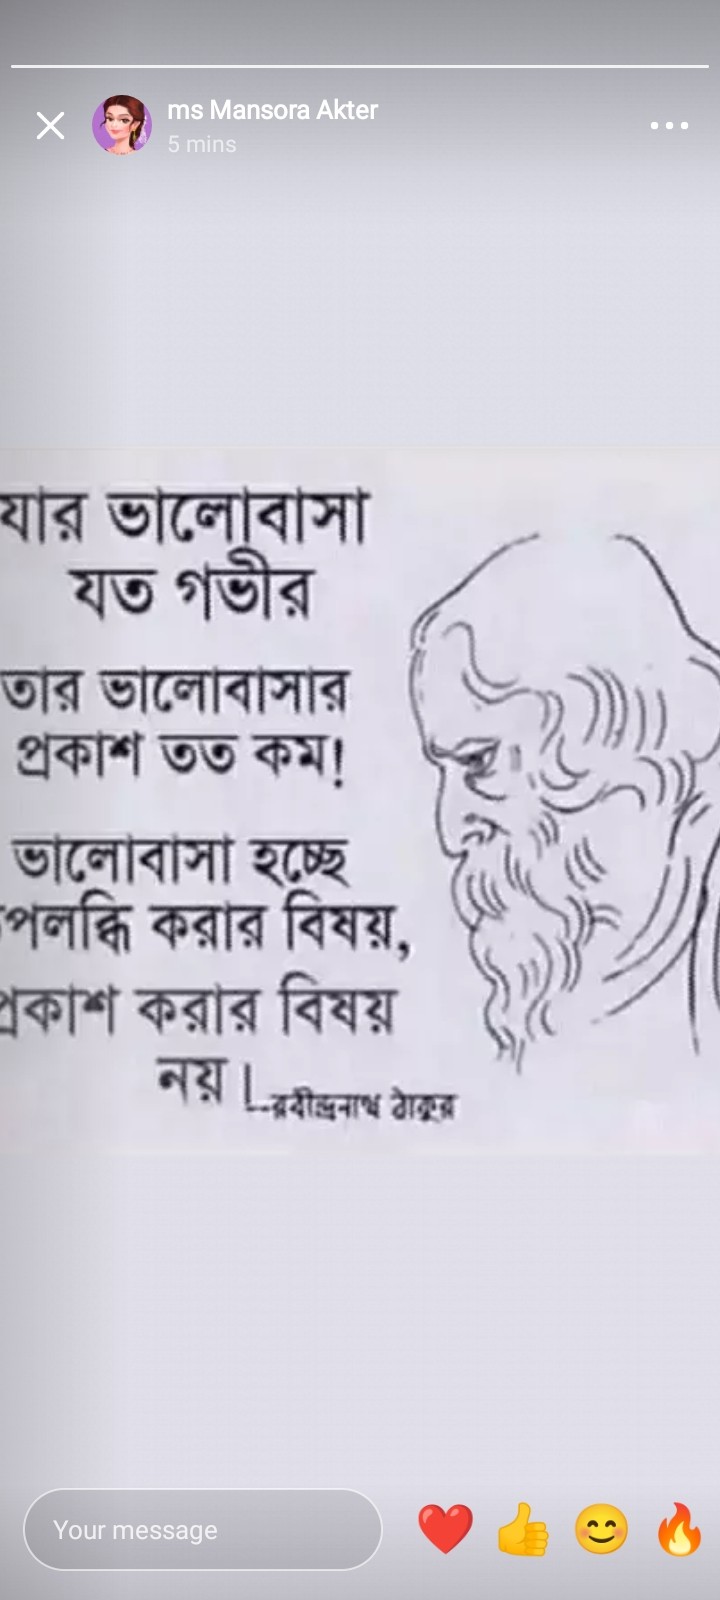 ms Mansora Akter
5 mins
যার ভালোবাসা
যত গভীর
তার ভালোবাসার
প্রকাশ তত কম!
ভালোবাসা হচ্ছে
উপলব্ধি করার বিষয়,
প্রকাশ করার বিষয়
নয়।
--রবীন্দ্রনাথ ঠাকুর
Your message